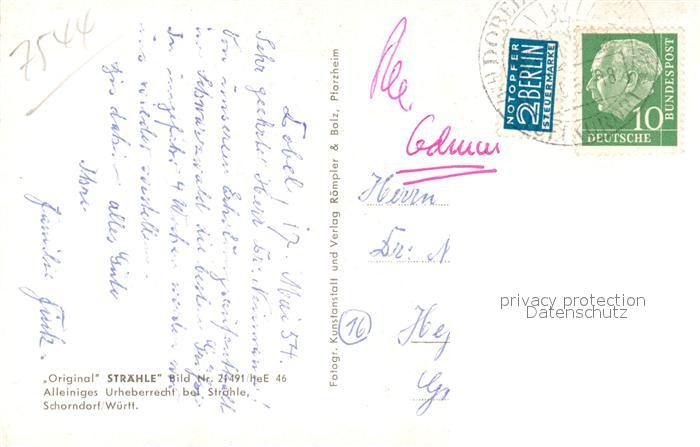 7544
Dobel, 17. Mai 54.
Sehr geehrter Herr Dr. Neumann!
Von unserem Erholungsaufenthalt
im Schwarzwald die besten Grüße.
In ungefähr 4 Wochen werden wir
uns wieder vorstellen.
Bis dahin alles Gute
Ihre
Familie
„Original" STRÄHLE" Bild Nr. 21491/heE 46
Alleiniges Urheberrecht bei Strähle,
Schorndorf/Württ.
Fotogr. Kunstanstalt und Verlag Römpler & Bolz, Pforzheim
NOTOPFER
2 BERLIN
STEUERMARKE
DOBEL
10
DEUTSCHE
BUNDESPOST
Herrn
Dr. N
16
privacy protection
Datenschutz